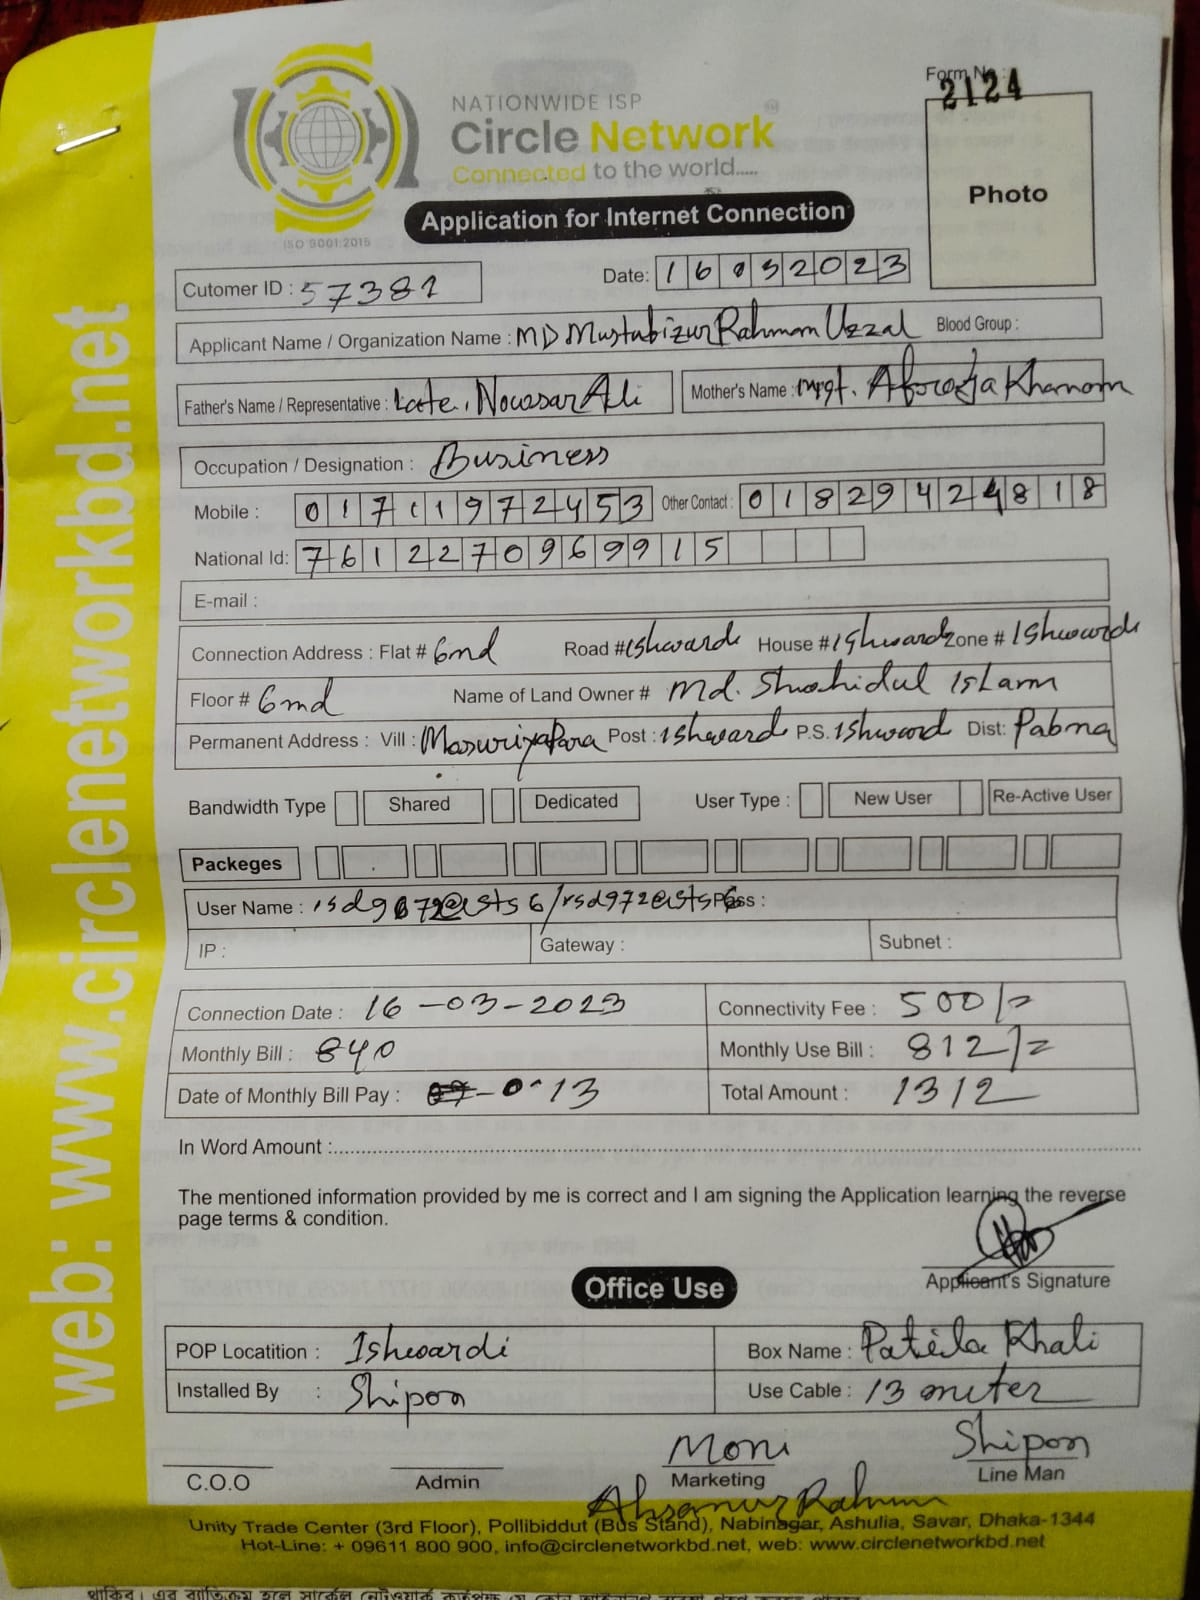 Form No :
2124
NATIONWIDE ISP
Circle Network
Connected to the world.....
ISO 9001:2015
Photo
Application for Internet Connection
Cutomer ID : 57381 Date: 16032023
Applicant Name / Organization Name : MD Mustabizur Rahman Uzzal Blood Group :
Father's Name / Representative : Late. Nowsar Ali Mother's Name : Afroza Khanom
Occupation / Designation : Business
Mobile : 01711972453 Other Contact : 01829424818
National Id: 7612270969915
E-mail :
Connection Address : Flat # 6md Road # Ishwardi House # Ishwardi Zone # Ishwardi
Floor # 6md Name of Land Owner # Md. Shahidul Islam
Permanent Address : Vill : MasuriyaPara Post : Ishward P.S. Ishward Dist: Pabna
Bandwidth Type Shared Dedicated User Type : New User Re-Active User
Packeges
User Name : Pass :
IP : Gateway : Subnet :
Connection Date : 16-03-2023 Connectivity Fee : 500/=
Monthly Bill : 840 Monthly Use Bill : 812/=
Date of Monthly Bill Pay : 13 Total Amount : 1312
In Word Amount :
The mentioned information provided by me is correct and I am signing the Application learning the reverse
page terms & condition.
Applicant's Signature
Office Use
POP Locatition : Ishwardi Box Name : Khali
Installed By : Shipon Use Cable : 13 meter
Moni Shipon
C.O.O Admin Marketing Line Man
Ahsanur Rahman
Unity Trade Center (3rd Floor), Pollibiddut (Bus Stand), Nabinagar, Ashulia, Savar, Dhaka-1344
Hot-Line: + 09611 800 900, info@circlenetworkbd.net, web: www.circlenetworkbd.net
web: www.circlenetworkbd.net